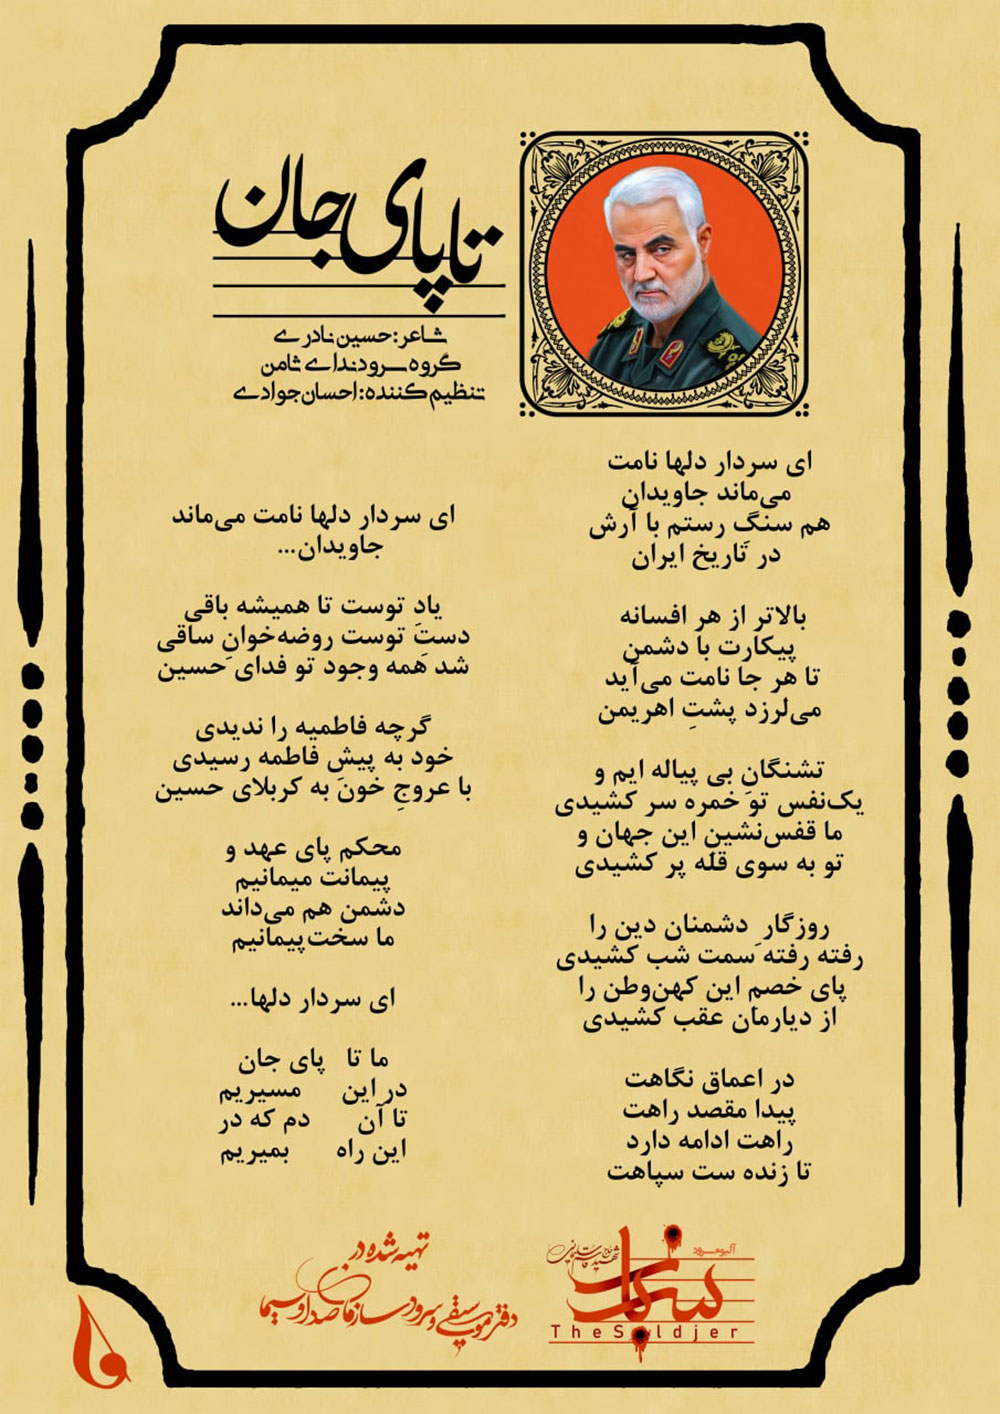 تا پای جان
شاعر: حسین نادری
گروه سرود ندای ثامن
تنظیم کننده: احسان جوادی
ای سردار دلها نامت
می‌ماند جاویدان
هم سنگ رستم با آرش
در تاریخ ایران
بالاتر از هر افسانه
پیکارت با دشمن
تا هر جا نامت می‌آید
می‌لرزد پشتِ اهریمن
تشنگانِ بی پیاله ایم و
یک‌نفس تو خمره سر کشیدی
ما قفس‌نشینِ این جهان و
تو به سوی قله پر کشیدی
روزگارِ دشمنان دین را
رفته رفته سمت شب کشیدی
پای خصم این کهن‌وطن را
از دیارمان عقب کشیدی
در اعماق نگاهت
پیدا مقصد راهت
راهت ادامه دارد
تا زنده ست سپاهت
ای سردار دلها نامت می‌ماند
جاویدان...
یادِ توست تا همیشه باقی
دستِ توست روضه‌خوانِ ساقی
شد همه وجود تو فدای حسین
گرچه فاطمیه را ندیدی
خود به پیشِ فاطمه رسیدی
با عروجِ خون به کربلای حسین
محکم پای عهد و
پیمانت میمانیم
دشمن هم می‌داند
ما سخت‌پیمانیم
ای سردار دلها...
ما تا پای جان
در این مسیریم
تا آن دم که در
این راه بمیریم
آلبوم سرود
سرباز
شهید حاج قاسم سلیمانی
TheSoldjer
تهیه شده در
دفتر موسیقی و سرود سازمان صدا و سیما